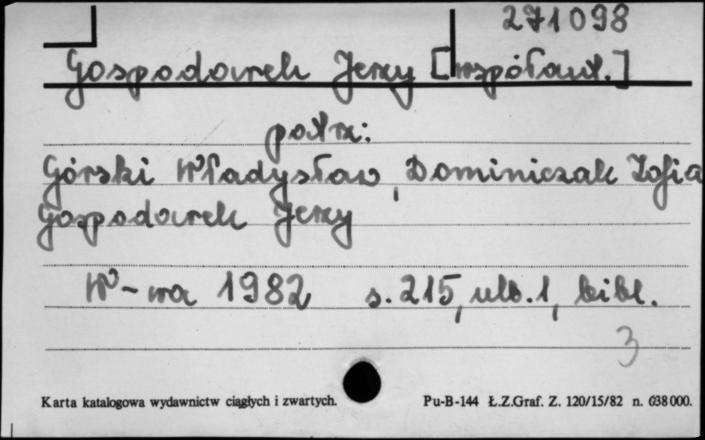 271098
Gospodarek Jerzy [współaut.]
patrz:
Górski Władysław, Dominiczak Zofia
Gospodarek Jerzy
W-wa 1982 s. 215, nlb. 1, bibl.
3
Karta katalogowa wydawnictw ciągłych i zwartych. Pu-B-144 Ł.Z.Graf. Z. 120/15/82 n. 638000.